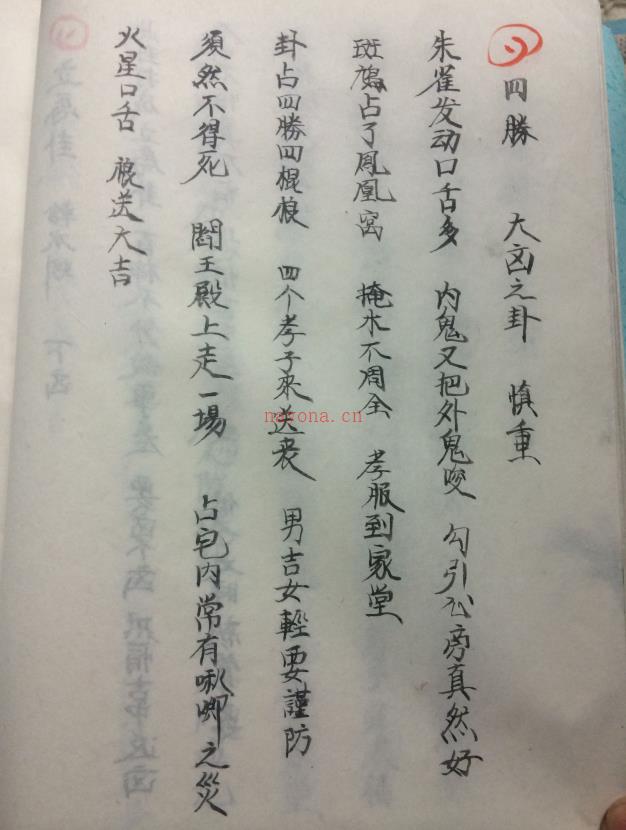 四勝 大凶之卦 慎重
朱雀发动口舌多 内鬼又把外鬼咬 勾引 旁真然好
斑鸠占了鳳凰窩 掩水不周全 孝服到家堂
卦占四勝四棍狼 四个孝子來送丧 男吉女輕要謹防
須然不得死 閻王殿上走一場 占宅内常有啾唧之災
火星口舌 送大吉
nayona.cn